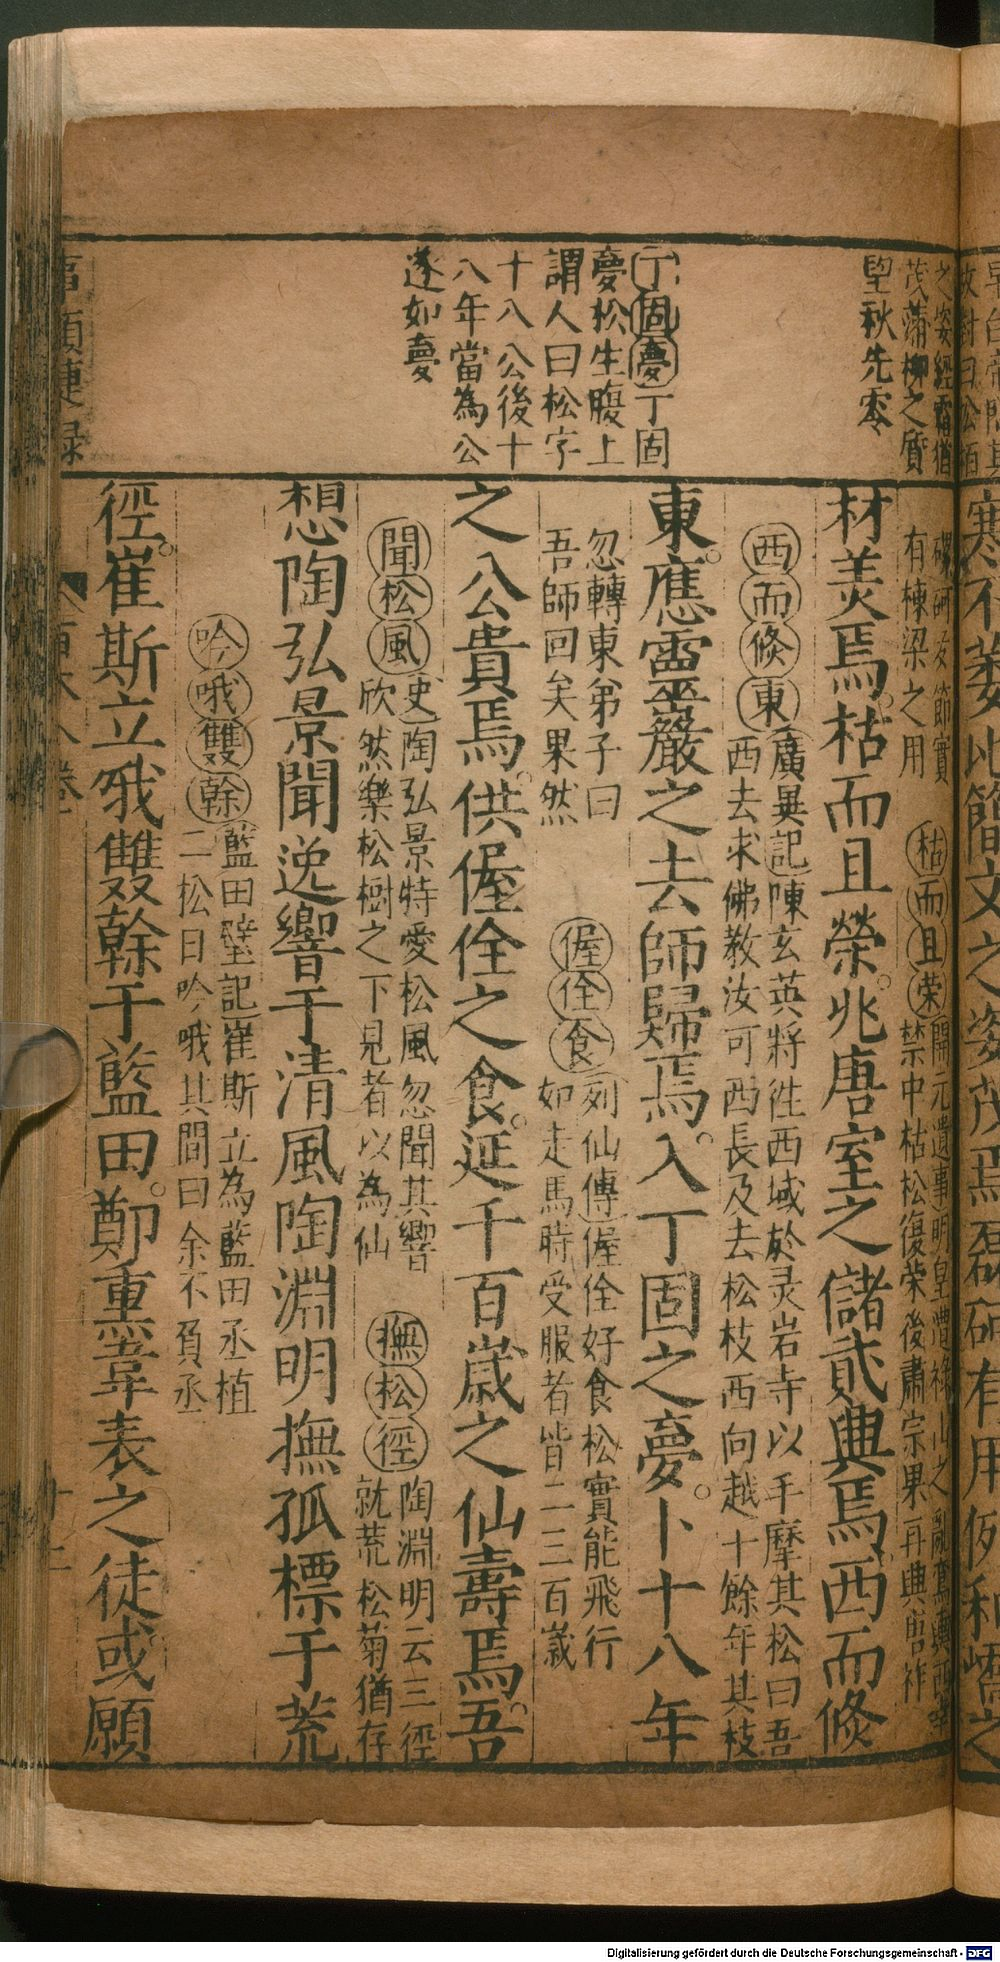 之姿經霜猶
茂蒲柳之質
望秋先零
丁固夢丁固
夢松生腹上
謂人曰松字
十八公後十
八年當為公
遂如夢
節實
有棟梁之用
枯而且荣
開元遺事明皇遭祿山之亂鸞輿西幸
禁中枯松復荣後肅宗果再興唐祚
材羙焉枯而且榮兆唐室之儲貳興焉西而倐
西而倐東
廣異記陳玄英將徃西域於灵岩寺以手摩其松曰吾
西去求佛教汝可西長及去松枝西向越十餘年其枝
東應霊巖之去師歸焉入丁固之夢卜十八年
忽轉東弟子曰
吾師回矣果然
偓佺食
列仙傳偓佺好食松實能飛行
如走馬時受服者皆二三百嵗
之公貴焉供偓佺之食延千百嵗之仙壽焉吾
聞松風
史陶弘景特愛松風忽聞其響
欣然樂松樹之下見者以為仙
撫松徑
陶淵明云三徑
就荒松菊猶存
想陶弘景聞逸響于清風陶淵明撫孤標于荒
吟哦雙幹
藍田壁記崔斯立為藍田丞植
二松日吟哦其間曰余不負丞
徑崔斯立哦雙幹于藍田鄭重韋表之徒或願
Digitalisierung gefördert durch die Deutsche Forschungsgemeinschaft - DFG